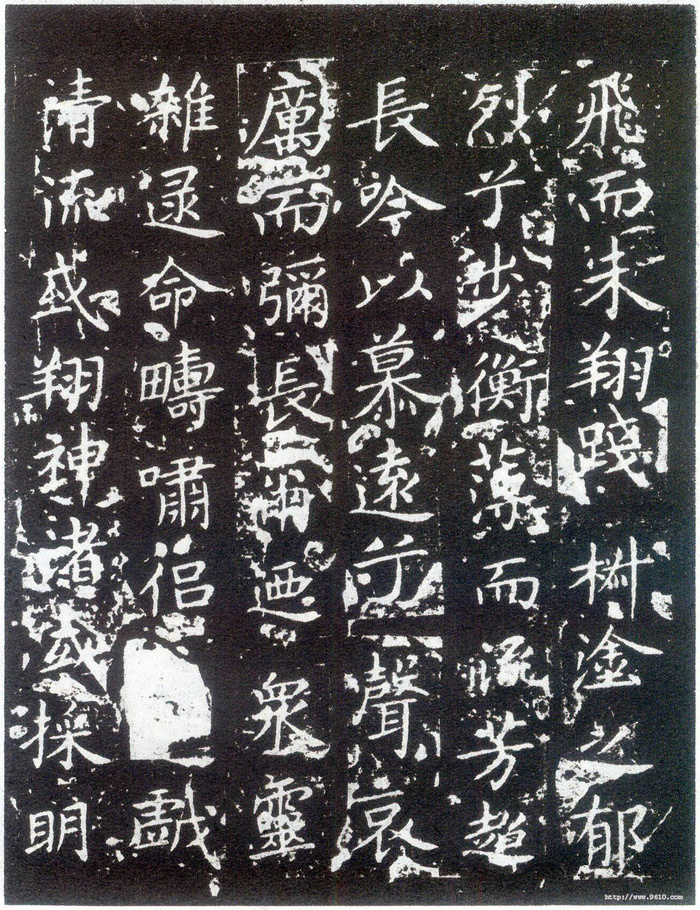 飛而未翔踐椒塗之郁
烈兮步衡薄而流芳超
長吟以慕遠兮聲哀
厲而彌長爾迺眾靈
雜遝命疇嘯侣戲
清流或翔神渚或採明
http://www.9610.com